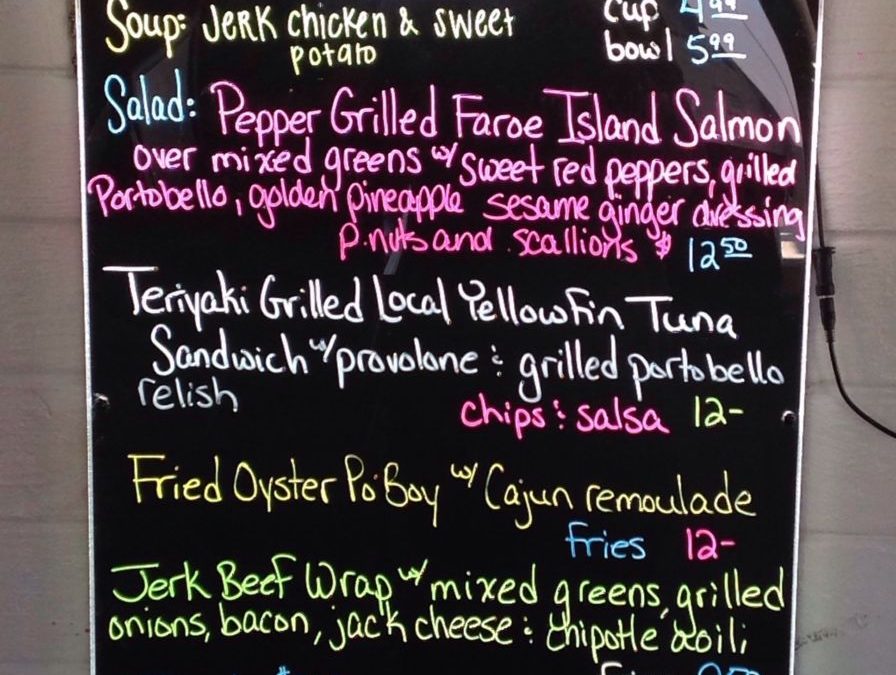 Soup: Jerk chicken & sweet potato
cup 4 99
bowl 5 99
Salad: Pepper Grilled Faroe Island Salmon
over mixed greens w/ sweet red peppers, grilled
Portobello, golden pineapple sesame ginger dressing
p.nuts and scallions $ 12 50
Teriyaki Grilled Local Yellowfin Tuna
Sandwich w/ provolone & grilled portobello
relish
chips & salsa 12-
Fried Oyster Po'Boy w/ Cajun remoulade
Fries 12-
Jerk Beef Wrap w/ mixed greens, grilled
onions, bacon, jack cheese & chipotle aoili